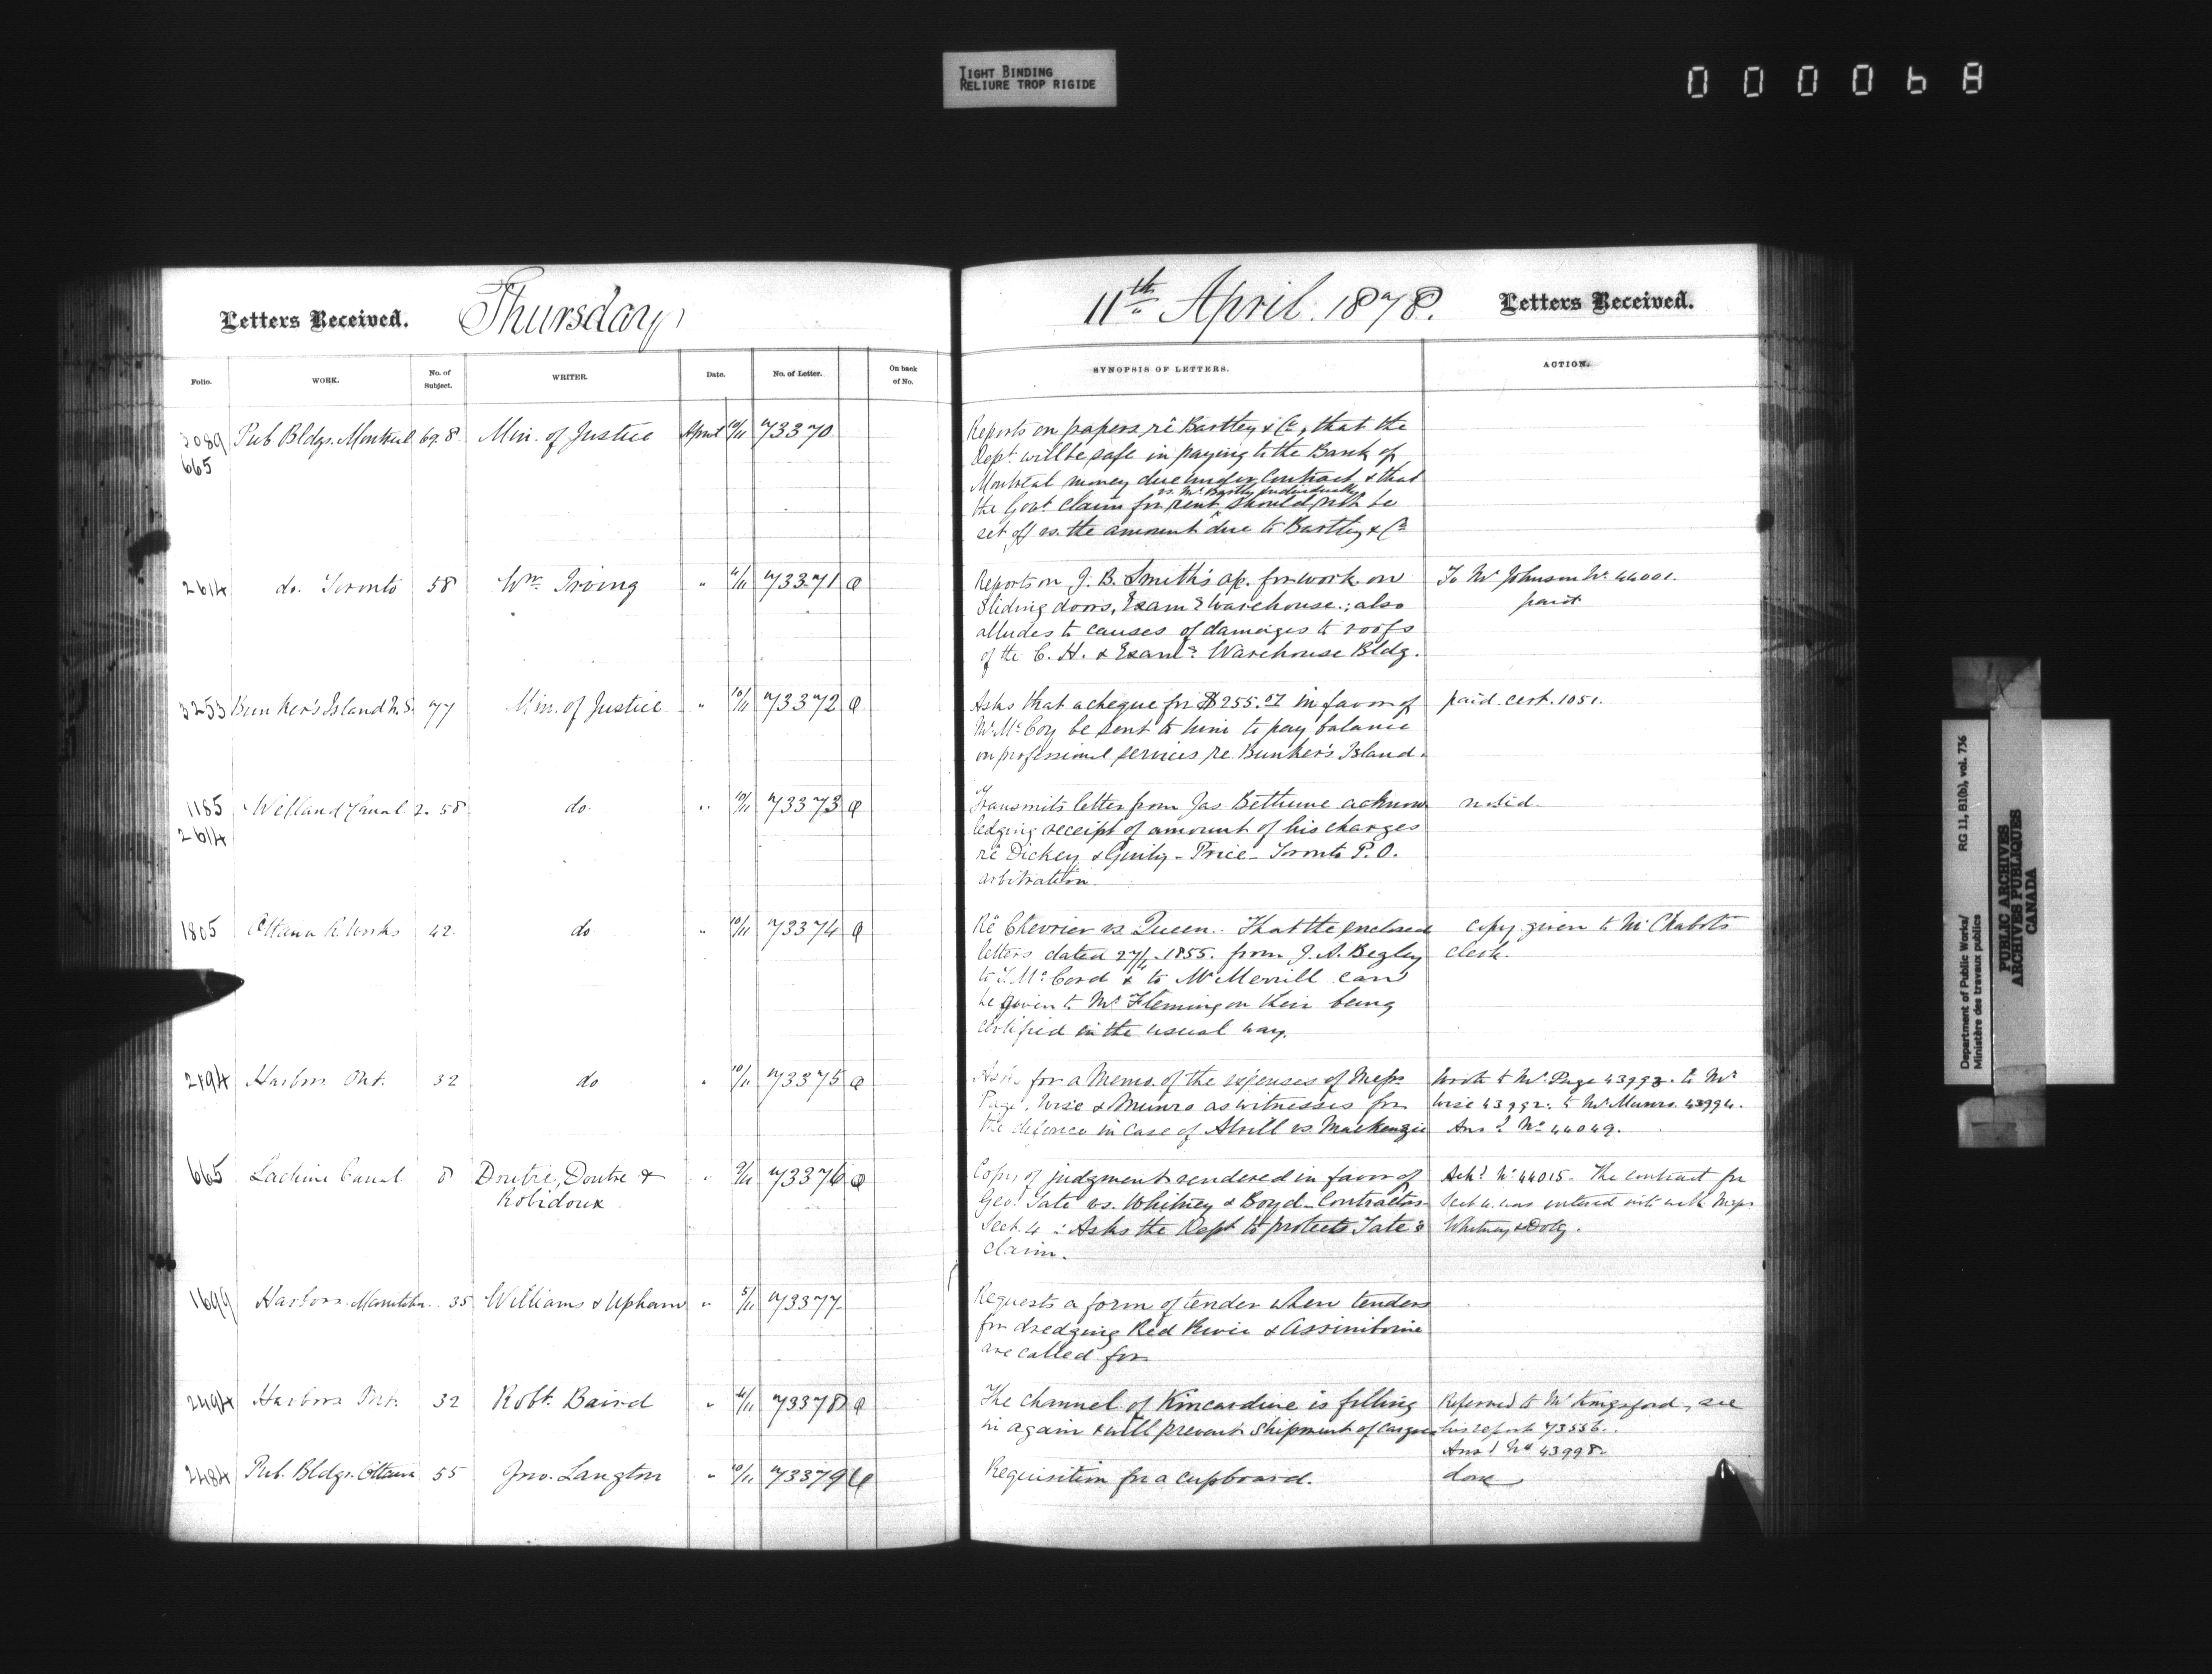 TIGHT BINDING
RELIURE TROP RIGIDE
000068
Letters Received. Thursday
11th April. 1878. Letters Received.
Folio. WORK. No. of Subject. WRITER. Date. No. of Letter. On back of No.
SYNOPSIS OF LETTERS. ACTION.
3089 Pub Bldgs. Montreal 69. 8 Min. of Justice April 10/11 73370
665
Reports on papers re Bartley & Co, that the
Dept. will be safe in paying to the Bank of
Montreal money due under Contract, & that
vs. Mr. Bartley individually
the Govt. claim for rent should not be
set off vs. the amount due to Bartley & Co
2614 do. Toronto 58 Wm. Irving " 73371
Reports on J. B. Smith's ap. for work on
sliding doors, Exam'g Warehouse; also
alludes to causes of damages to roofs
of the C. H. & Exam'g Warehouse Bldg.
To Mr Johnson No. 44001.
paid
3253 Bunker's Island N.S. 77 Min. of Justice " 10/11 73372
Asks that a cheque for $255.07 in favor of
Mr. McCoy be sent to him to pay balance
on professional services re Bunker's Island.
paid. cert. 1051.
1185 Welland Canal 2. 58 do. " 10/11 73373
2614
Transmits letter from Jas Bethune acknow
ledging receipt of amount of his charges
re Dickey & - Price - Toronto P.O.
arbitration.
noted.
1805 Ottawa R. Works 42. do " 10/11 73374
Re Chevrier vs Queen. That the enclosed
letters dated 1855. from J. A. Begley
to T. McCord & to Mr Merrill can
be given to Mr. Fleming on their being
certified in the usual way.
copy given to Mr Chabot's
clerk.
2494 Harbors Ont. 32 do " 10/11 73375
Asks for a Memo. of the expenses of Messrs
Page, Wise & Munro as witnesses for
the defence in case of vs. Mackenzie
Wrote to Mr. Page 43993. to Mr
Wise 43992. to Mr. Munro. 43994.
Ans'd No 44049.
665 Lachine Canal 8 Doutre, Doutre & " 9/11 73376
Robidoux
Copy of judgment rendered in favor of
Geo. Tate vs. Whitney & Boyd - Contractors
Sect. 4: Asks the Dept to protect Tate's
claim.
Ackd. No. 44015. The contract for
Sect 4. was entered into with Messrs
Whitney & Doty.
1699 Harbors Manitoba. 35 Williams & Upham " 5/11 73377
Requests a form of tender when tenders
for dredging Red River & Assiniboine
are called for
2494 Harbors Ont. 32 Robt. Baird " 73378
The channel of Kincardine is filling
in again & will prevent shipment of cargoes
Referred to Mr Kingsford, see
his report 73556.
Ansd No 43998.
2484 Pub. Bldgs. Ottawa 55 Jno. Langton " 10/11 73379
Requisition for a cupboard.
done
Department of Public Works/ RG 11, B1(b), vol. 736
Ministère des travaux publics
PUBLIC ARCHIVES
ARCHIVES PUBLIQUES
CANADA